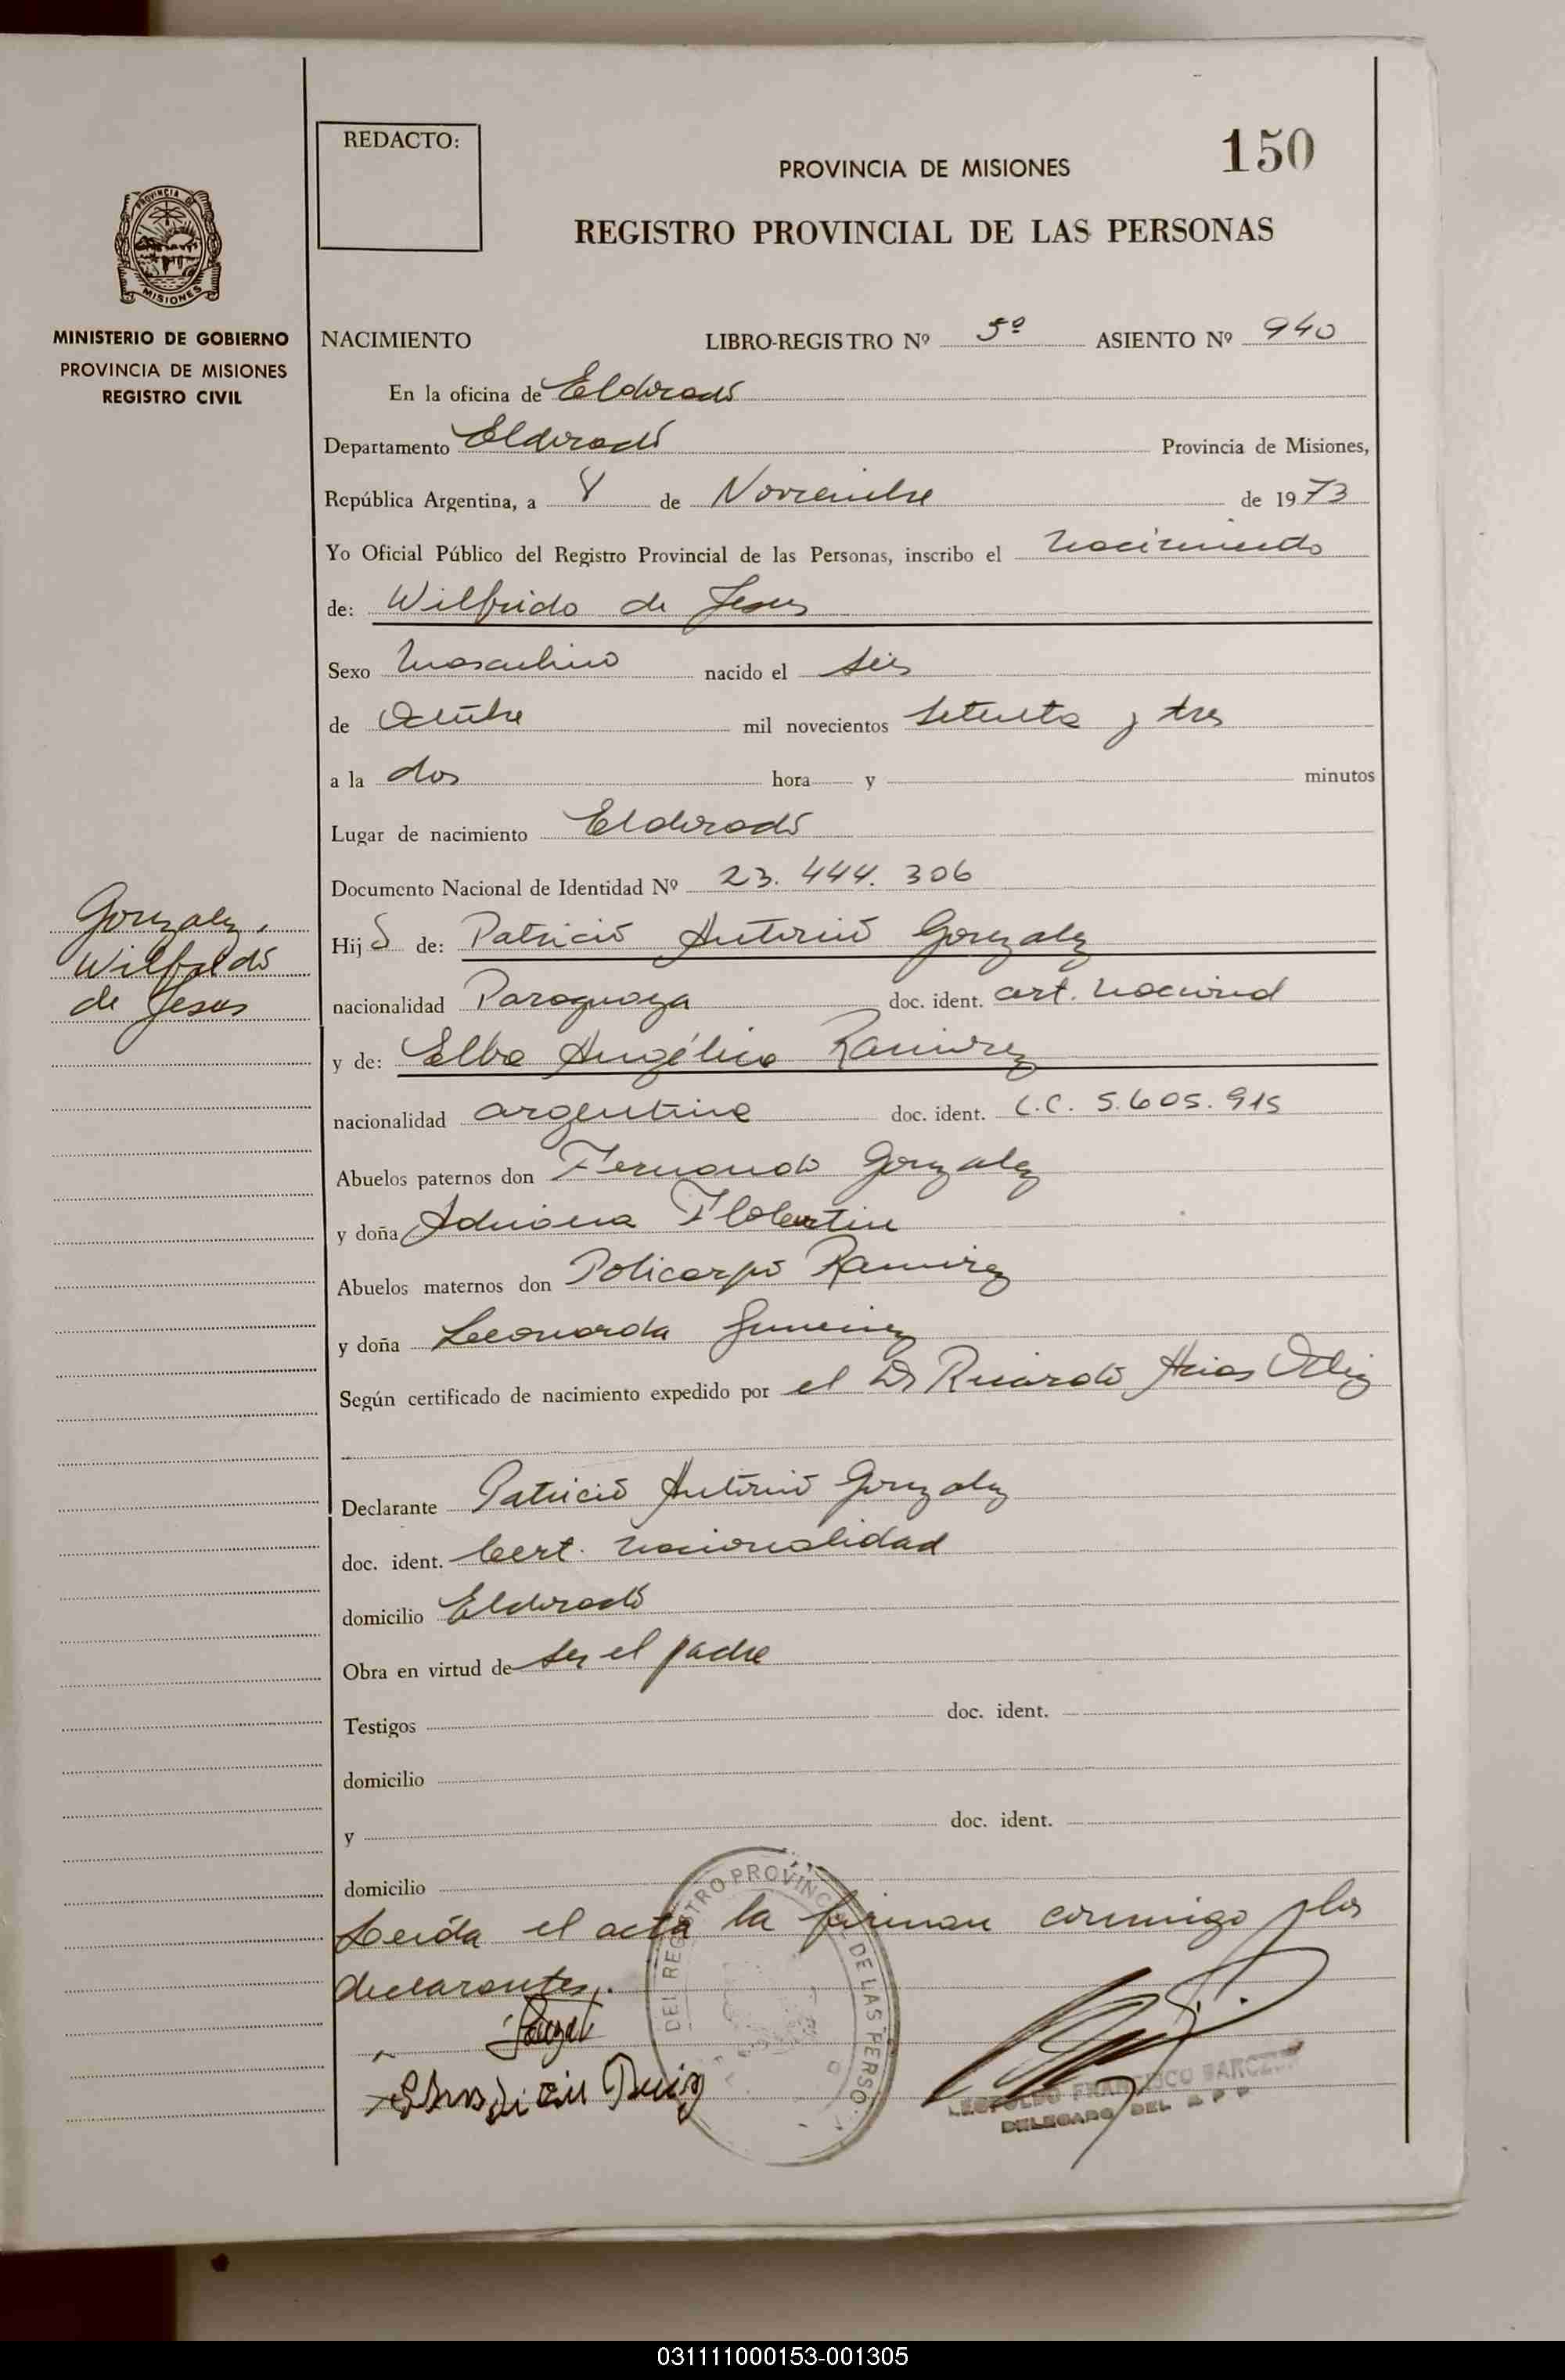 150
REDACTO:
PROVINCIA DE MISIONES
REGISTRO PROVINCIAL DE LAS PERSONAS
PROVINCIA DE
MISIONES
MINISTERIO DE GOBIERNO
PROVINCIA DE MISIONES
REGISTRO CIVIL
NACIMIENTO LIBRO-REGISTRO Nº 5º ASIENTO Nº 940
En la oficina de Eldorado
Departamento Eldorado Provincia de Misiones,
República Argentina, a 8 de Noviembre de 1973
Yo Oficial Público del Registro Provincial de las Personas, inscribo el nacimiento
de: Wilfrido de Jesus
Sexo masculino nacido el seis
de Octubre mil novecientos setenta y tres
a la dos hora y minutos
Lugar de nacimiento Eldorado
Documento Nacional de Identidad Nº 23.444.306
Hijo de: Patricio Antonio Gonzalez
nacionalidad Paraguaya doc. ident. cert. nacional
y de: Elba Angélica Ramirez
nacionalidad argentina doc. ident. L.C. 5.605.915
Abuelos paternos don Fernando Gonzalez
y doña Adriana Florentin
Abuelos maternos don Policarpo Ramirez
y doña Leonarda Gimenez
Según certificado de nacimiento expedido por el Dr Ricardo Arias
Declarante Patricio Antonio Gonzalez
doc. ident. Cert. nacionalidad
domicilio Eldorado
Obra en virtud de ser el padre
Testigos doc. ident.
domicilio
y doc. ident.
domicilio
Leída el acta la firman conmigo los
declarantes.
Gonzalez,
Wilfrido
de Jesus
DEL REGISTRO PROVINCIAL DE LAS PERSO
LEOPOLDO FRANCISCO
DELEGADO DEL R P P
031111000153-001305